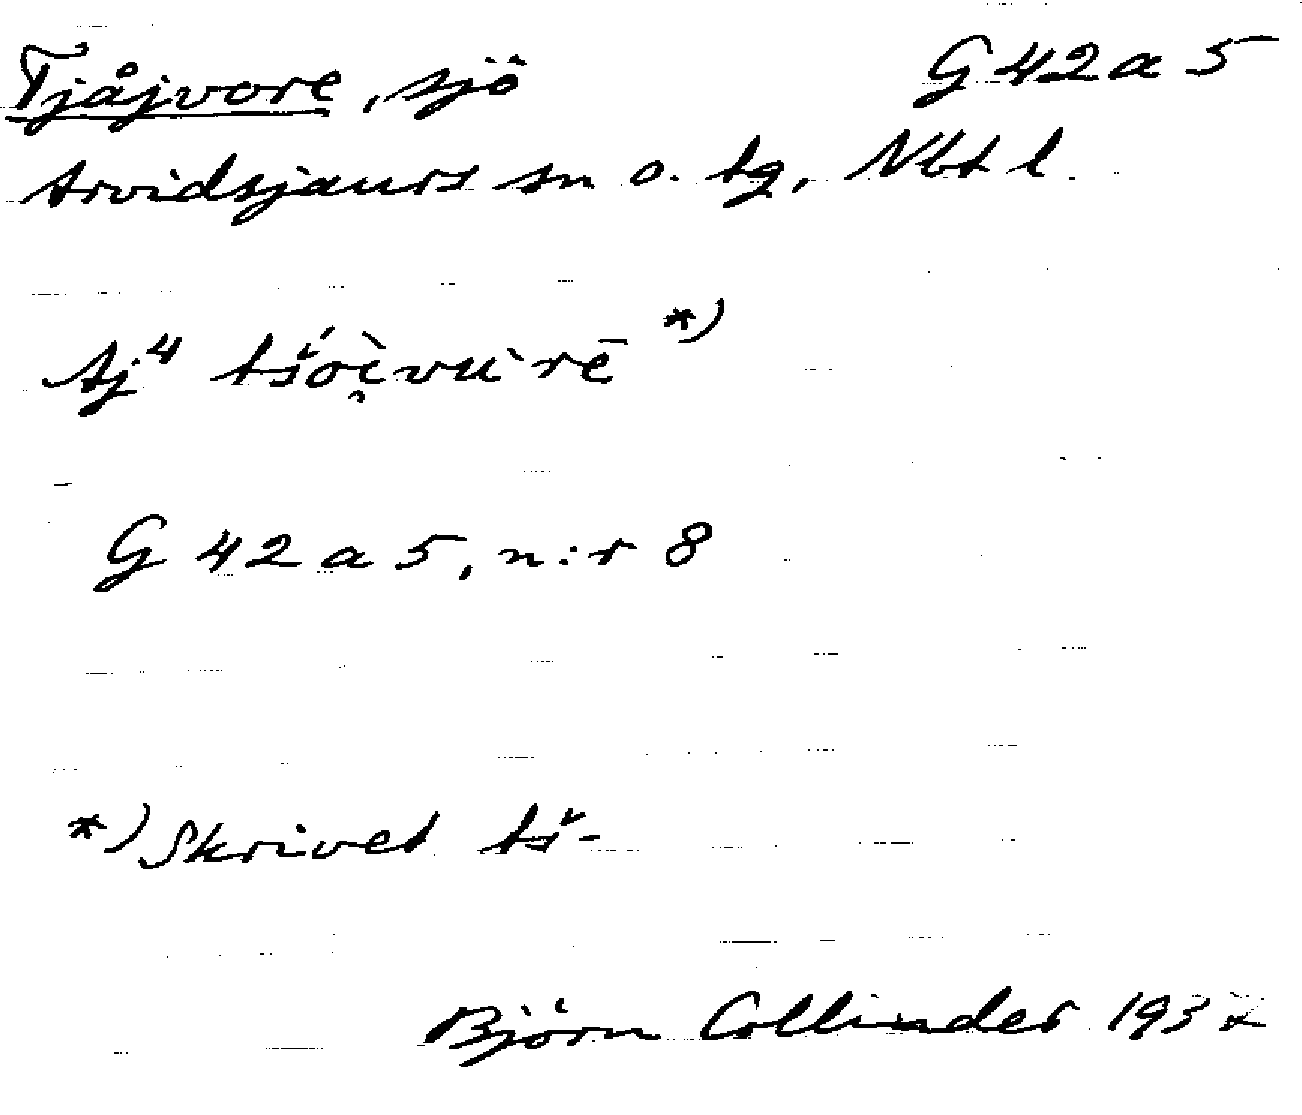 Tjåjvore, sjö G 42 a 5
Arvidsjaurs sn o. tg, Nbt l.
Aj⁴ *)
G 42 a 5, n:r 8
*) Skrivet tš-
Björn Collinder